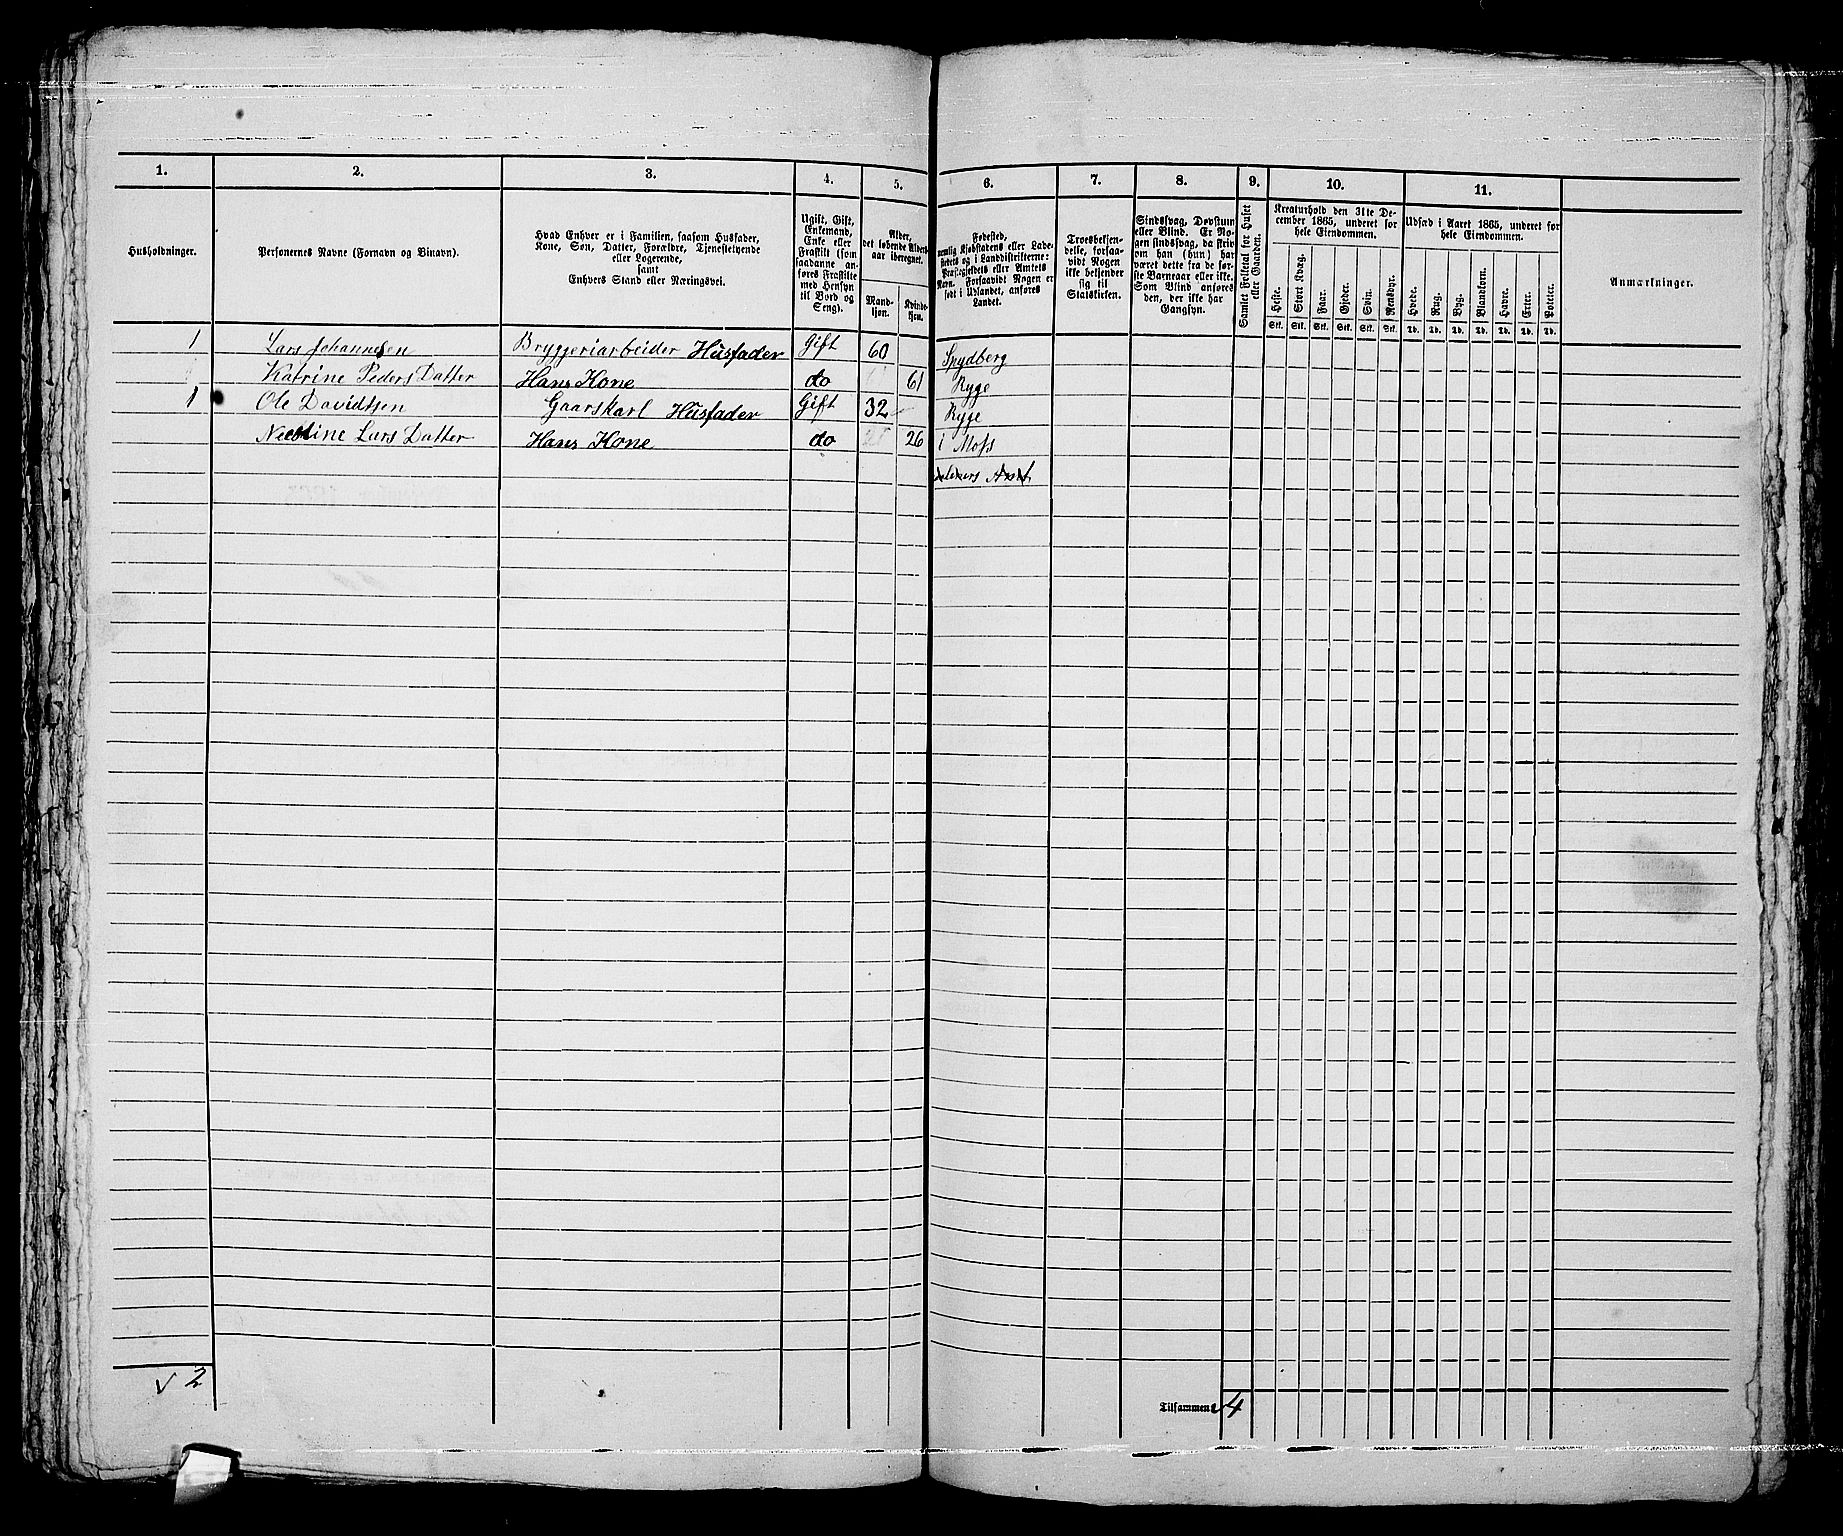 1. 2. 3. 4. 5. 6. 7. 8. 9. 10. 11.
Husholdninger.
Personernes Navne (Fornavn og Binavn).
Hvad Enhver er i Familien, saasom Husfader,
Kone, Søn, Datter, Forældre, Tjenestetyende
eller Logerende,
samt
Enhvers Stand eller Næringsvei.
Ugift, Gift,
Enkemand,
Enke eller
Fraskilt (som
saadanne an-
føres Fraskilte
med Hensyn
til Bord og
Seng).
Alder,
det løbende Alders-
aar iberegnet.
Mand-
kjøn.
Kvinde-
kjøn.
Fødested,
nemlig Kjøbstadens eller Lade-
stedets og i Landdistrikterne:
Præstegjeldets eller Amtets
Navn. Forsaavidt Nogen er
født i Udlandet, anføres
Landet.
Troesbekjen-
delse, forsaa-
vidt Nogen
ikke bekjender
sig til
Statskirken.
Sindssvag, Døvstum
eller Blind. Er No-
gen sindssvag, da skriv
om han (hun) har
været dette fra de før-
ste Barneaar eller ikke.
Som Blind anføres
den, der ikke har
Gangsyn.
Samlet Folketal for Huset
eller Gaarden.
Kreaturhold den 31te De-
cember 1865, underet for
hele Eiendommen.
Heste. Stort Kvæg. Faar. Gjeder. Svin. Rensdyr.
Stk. Stk. Stk. Stk. Stk. Stk.
Udsæd i Aaret 1865, underet for
hele Eiendommen.
Hvede. Rug. Byg. Blandkorn. Havre. Erter. Poteter.
Td. Td. Td. Td. Td. Td. Td.
Anmærkninger.
1 Lars Johannesen Bryggeriarbeider Husfader Gift 60 Spydberg
Katrine Peders Datter Hans Kone do 61 Rygge
1 Ole Davidtsen Gaarskarl Husfader Gift 32 Rygge
Lars Datter Hans Kone do 26 i Moss
√ 2
Tilsammen 4